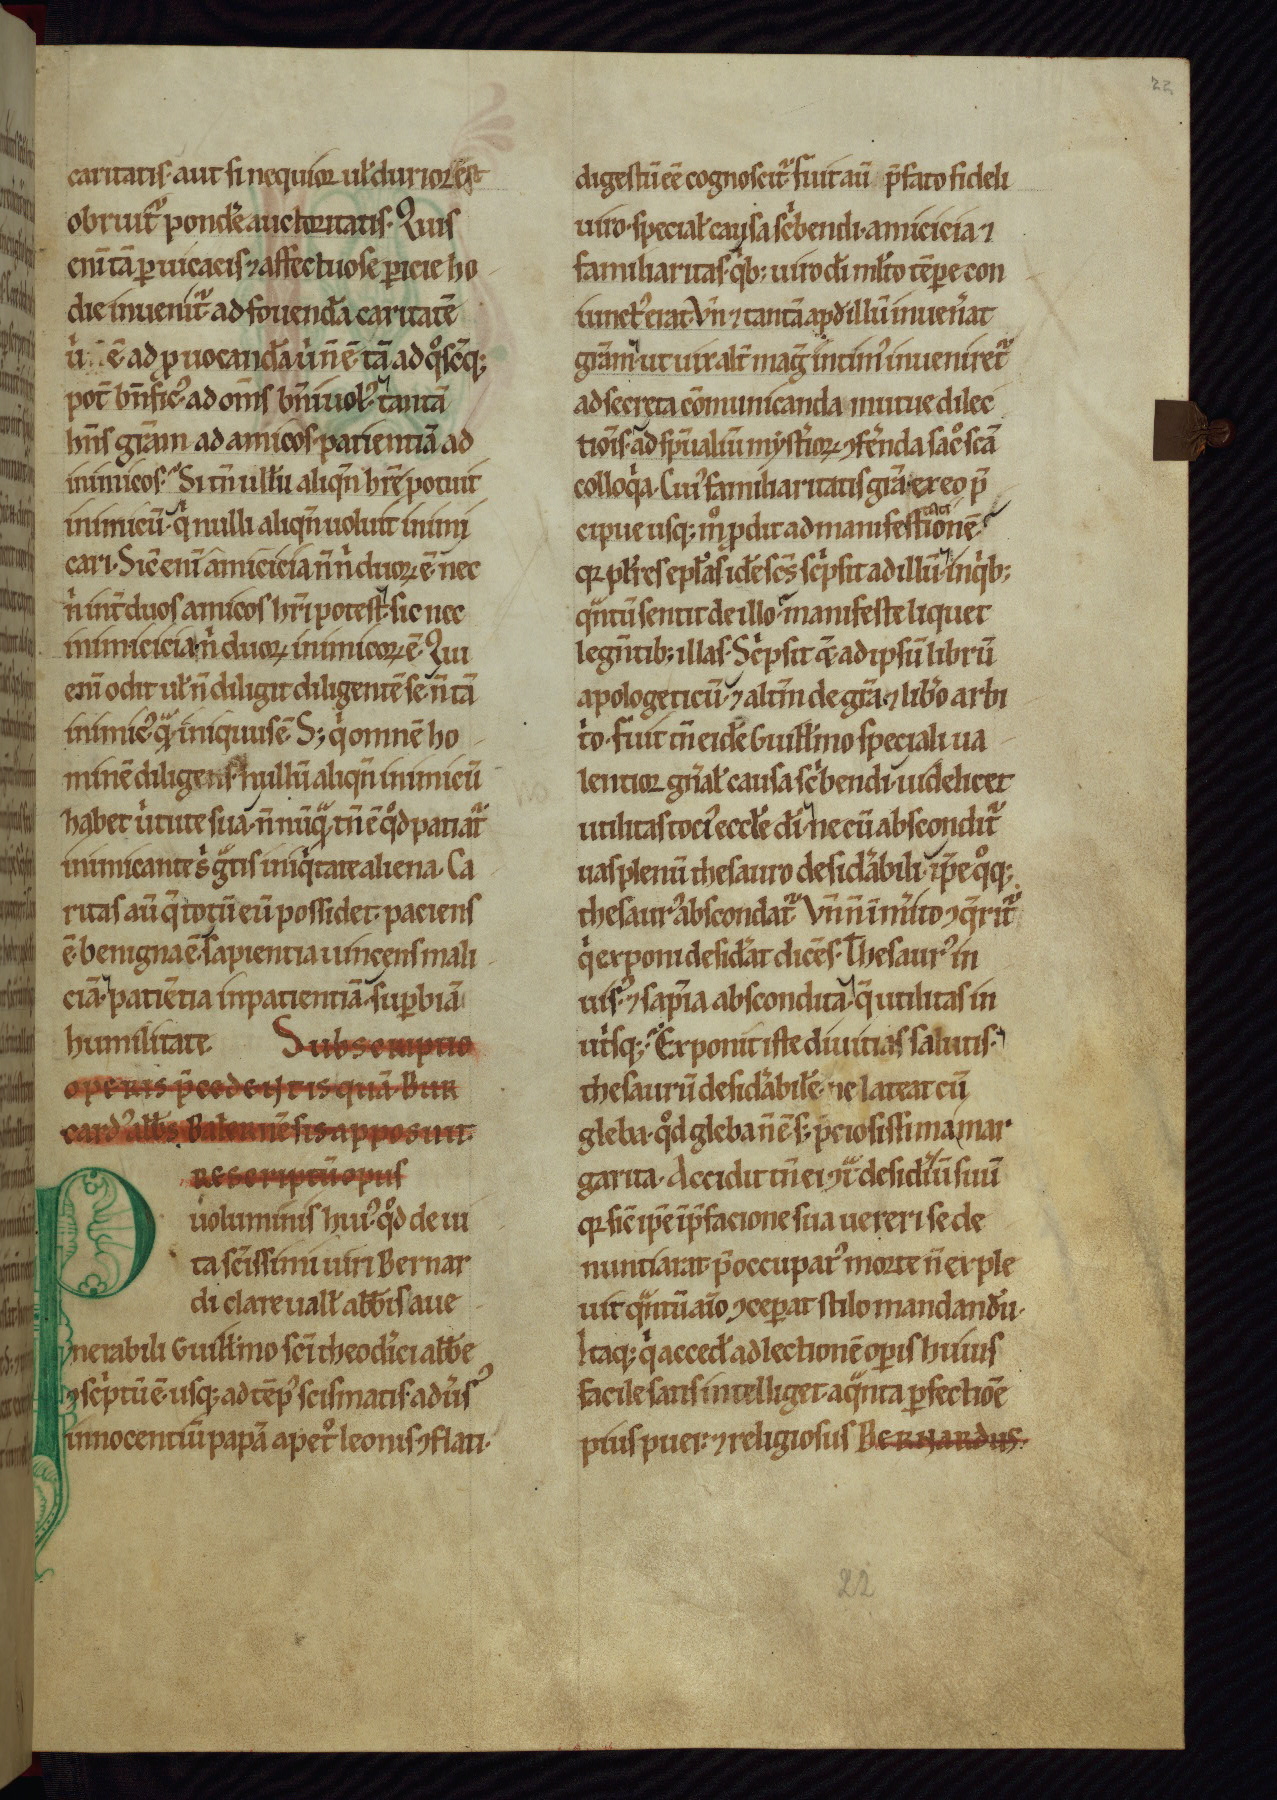 22
caritatis· aut si nequior ul̄ durior est
obruit᷑ pondẽ auctoritatis. Quis
eni tā puicacis ⁊ affectuose picie ho
die inuenit᷑· ad fouendā caritatē
ē ad puocandā tā ad
pot̄ bn̄fic᷒ ad om̄s bn̄iuol᷒ tantā
hn̄s grām ad amicos· patientiā ad
inimicos. Si tn̄ ullū aliqn̄ hr̄e potuit
inimicū· q̇ nulli aliqn̄ uoluit inimi
cari. Sic̄ eni amicicia n̄ n̄ duoꝝ ē· nec
n̄ int̄ duos amicos hr̄i potest· sic nec
inimicicia n̄ duoꝝ inimicoꝝ ē. Qui
eni odit ul̄ n̄ diligit diligentē se· n̄ tā
inimic᷒ qͣ iniquus ē. S; q̇ omnē ho
minē diligens· nullū aliqn̄ inimicū
habet u̇tute sua· n̄ nūqͣ tn̄ ē qͦd patiat᷑
inimicantes gͣtis iniq̇tate aliena. Ca
ritas aū q̄ totū eū possidet· paciens
ē· benigna ē· sapientia uincens mali
ciā· patiētia inpatientiā· supbiā
humilitate. Subscriptio
operis p̄cedentis quā Bur
card᷒ abb̄s Balernēsis apposuit.
Descriptū opus
Puoluminis hui᷒ qͦd de ui
ta sc̄issimi uiri Bernar
di clareuall̄ abb̄is a ue
nerabili Guill̄mo sc̄i theodrici abb̄e
ꝯsc̄ptū ē· usq; ad tēp᷒ scismatis· adu̇s᷒
innocentiū papā a petͦ leonis ꝯflati·
digestū eē cognoscit᷑. Fuit aū p̄fato fideli
uiro· special̄ causa sc̄bendi· amicicia ⁊
familiaritas· q̇b; uiro dī ml̄to tēpe con
iunct᷒ erat. Vn̄ ⁊ tantā apd̄ illū inuen̄at
grām· ut uix alt̄ mag̈ intim᷒ inueniret᷑
ad secreta cōmunicanda mutue dilec
tiois· ad sp̄ualiū myst̄ioꝝ ꝯfēnda sacͦscā
colloq̇a. Cui᷒ familiaritatis grā· ex eo p̄
cipue usq; mͦ pdit ad manifestationē·
qꝛ pl̄res ep̄las idē sc̄s sc̄psit ad illū· in q̇b;
qͣntū sentit de illo· manifeste liquet
legn̄tib; illas. Sc̄psit q̄· ad ipsū librū
apologeticū· ⁊ altm̄ de grā ⁊ lib̄o arbi
t̄o. Fuit tn̄ eidē Guill̄mo speciali ua
lentior gn̄al̄ causa sc̄bendi· uidelicet
utilitas toci᷒ eccl̄e dī· ne cū abscondit᷑
uas plenū thesauro desid̄abili· ip̄e qͦq;
thesaur᷒ abscondat᷑. Vn̄ n̄ īm̄ito ꝯq̄rit᷑
q̇ exponi desid̄at dicēs. Thesaur᷒ in
uis᷒ ⁊ sap̄ia abscondita· q̄ utilitas in
ut̄sq;. Exponit iste diuitias salutis·
thesaurū desid̄abilē· ne lateat cū
gleba· qͦd gleba n̄ ē· s; p̄ciosissima mar
garita. Accidit tn̄ ei ꝯtͣ desid̄iū suū
qꝛ sic̄ ip̄e ī p̄facione sua uereri se de
nuntiarat· p̄occupat᷒ morte n̄ exple
uit qͣntū aīo ꝯcepat stilo mandandū.
Itaq; q̇ acced̄ ad lectionē opis huius
facile satis intelliget· a qͣnta pfectiōe
pius puer· ⁊ religiosus Bernardus.
22